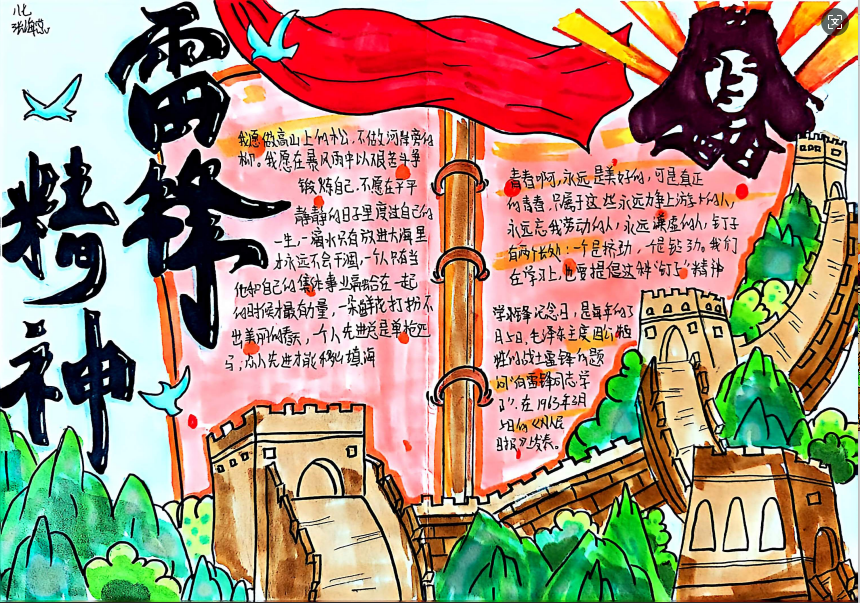 八七
雷锋
精神
我愿做高山上的松,不做河岸旁的
柳。我愿在暴风雨中以艰苦斗争
锻炼自己,不愿在平平
静静的日子里度过自己的
一生,一滴水只有放进大海里
才永远不会干涸,一个人只有当
他和自己的集体事业融合在一起
的时候才最有力量,一朵鲜花打扮不
出美丽的春天,一个人先进总是单枪匹
马,众人先进才能移山填海
青春啊,永远是美好的,可是真正
的青春,只属于这些永远力争上游的人,
永远忘我劳动的人,永远谦虚的人,钉子
有两个长处:一个是挤劲,一个是钻劲。我们
在学习上,也要提倡这种"钉子"精神
学雷锋纪念日,是每年的3
月5日,毛泽东主席因公牺
牲的战士雷锋的题
词"向雷锋同志学
习"。在1963年3月
5日的《人民
日报》发表。